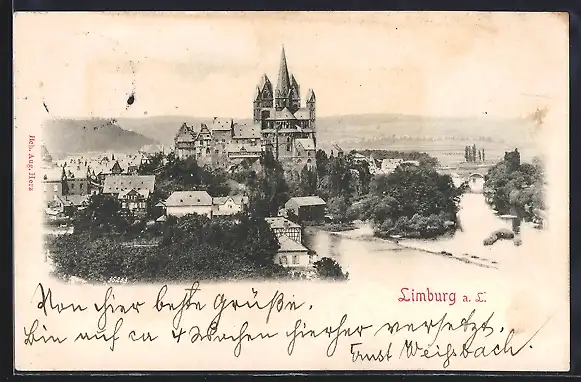 Heh. Aug. Herz
Limburg a. L.
Von hier beste Grüße.
Bin auf ca 4 Wochen hierher versetzt.
Ernst Weissbach.